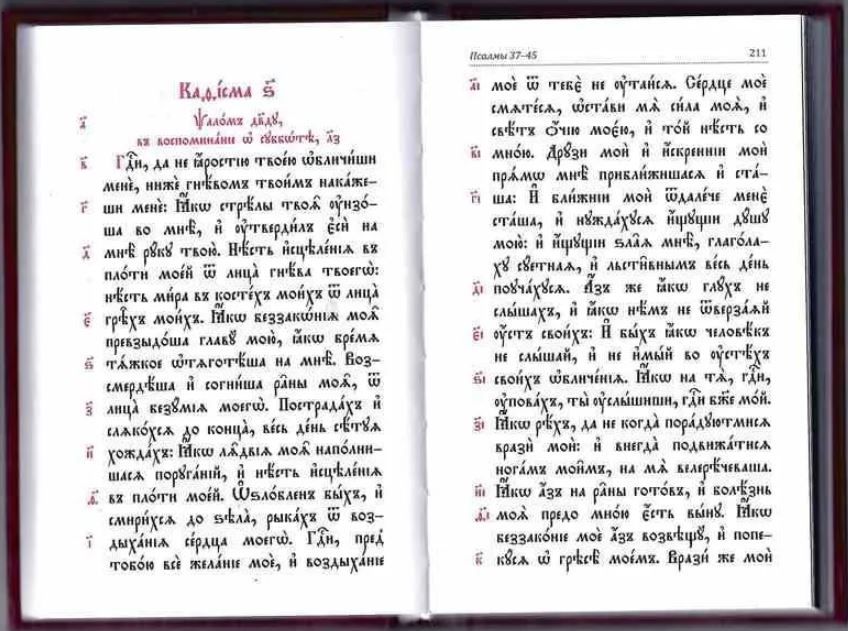 Каѳі́сма ѕ҃
а҃ Ѱало́мъ дв҃ду,
въ воспомина́ніе ѡ҆ суббѡ́тѣ, л҃з
в҃ Гд҇и, да не ꙗ҆́ростїю твое́ю ѡ҆бличи́ши
менѐ, нижѐ гнѣ́вомъ твои́мъ нака́же-
г҃ ши менѐ: Ꙗ҆́кѡ стрѣ́лы твоѧ̑ ᲂу҆нзо́-
ша во мнѣ̀, и҆ ᲂу҆тверди́лъ є҆сѝ на
д҃ мнѣ̀ рꙋ́кꙋ твою̀. Нѣ́сть и҆сцѣле́нїѧ въ
пло́ти мое́й ѿ лица̀ гнѣ́ва твоегѡ̀:
нѣ́сть ми́ра въ косте́хъ мои́хъ ѿ лица̀
є҃ грѣ̑хъ мои́хъ. Ꙗ҆́кѡ беззакѡ́нїѧ моѧ̑
превзыдо́ша главꙋ̀ мою̀, ꙗ҆́кѡ бре́мѧ
ѕ҃ тѧ́жкое ѡ҆тѧготѣ́ша на мнѣ̀. Воз-
смердѣ́ша и҆ согни́ша ра̑ны моѧ̑, ѿ
з҃ лица̀ безꙋ́мїѧ моегѡ̀. Пострада́хъ и҆
слѧко́хсѧ до конца̀, ве́сь де́нь сѣ́тꙋѧ
и҃ хожда́хъ: Ꙗ҆́кѡ лѧ̑двїѧ моѧ̑ напо́лни-
шасѧ порꙋга́нїй, и҆ нѣ́сть и҆сцѣле́нїѧ
ѳ҃ въ пло́ти мое́й. Ѡ҆ѕло́бленъ бы́хъ, и҆
смири́хсѧ до ѕѣла̀, рыка́хъ ѿ воз-
і҃ дыха́нїѧ се́рдца моегѡ̀. Гд҇и, пред̾
тобо́ю всѐ жела́нїе моѐ, и҆ воздыха́нїе
Псалмы 37–45 211
а҃і моѐ ѿ тебє̀ не ᲂу҆таи́сѧ. Се́рдце моѐ
смѧте́сѧ, ѡ҆ста́ви мѧ̀ си́ла моѧ̀, и҆
свѣ́тъ ѻ҆́чїю моє́ю, и҆ то́й нѣ́сть со
в҃і мно́ю. Дрꙋ́зи моѝ и҆ и҆́скреннїи моѝ
прѧ́мѡ мнѣ̀ прибли́жишасѧ и҆ ста́-
г҃і ша: И҆ бли́жнїи моѝ ѿдале́че менє̀
ста́ша, и҆ нꙋжда́хꙋсѧ и҆́щꙋщїи дꙋ́шꙋ
мою̀: и҆ и҆́щꙋщїи ѕла̑ѧ мнѣ̀, глаго́ла-
хꙋ сꙋ́єтнаѧ, и҆ льсти̑внымъ ве́сь де́нь
д҃і поꙋча́хꙋсѧ. А҆́зъ же ꙗ҆́кѡ глꙋ́хъ не
слы́шахъ, и҆ ꙗ҆́кѡ нѣ́мъ не ѿверза́ѧй
є҃і ᲂу҆́стъ свои́хъ: И҆ бы́хъ ꙗ҆́кѡ человѣ́къ
не слы́шай, и҆ не и҆мы́й во ᲂу҆стѣ́хъ
ѕ҃і свои́хъ ѡ҆бличе́нїѧ. Ꙗ҆́кѡ на тѧ̀, гд҇и,
ᲂу҆пова́хъ, ты̀ ᲂу҆слы́шиши, гд҇и бж҃е мо́й.
з҃і Ꙗ҆́кѡ рѣ́хъ, да не когда̀ пора́дꙋютмисѧ
вразѝ моѝ: и҆ внегда̀ подвижа́тисѧ
нога́мъ мои̑мъ, на мѧ̀ велерѣ́чеваша.
и҃і Ꙗ҆́кѡ а҆́зъ на ра̑ны гото́въ, и҆ болѣ́знь
ѳ҃і моѧ̀ предо мно́ю є҆́сть вы́нꙋ. Ꙗ҆́кѡ
беззако́нїе моѐ а҆́зъ возвѣщꙋ̀, и҆ попе-
к҃ кꙋ́сѧ ѡ҆ грѣсѣ̀ мое́мъ. Вразѝ же моѝ